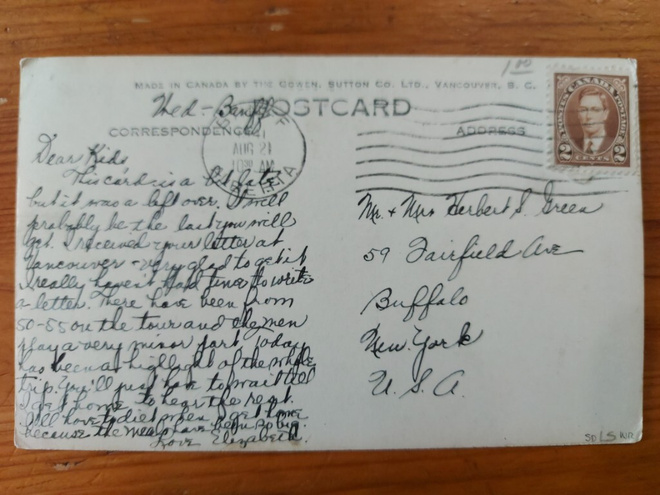 1.00
MADE IN CANADA BY THE GOWEN, SUTTON CO. LTD., VANCOUVER, B. C.
Wed - Banff
POSTCARD
CORRESPONDENCE
ADDRESS
AUG 21
10 AM
ALBERTA
POSTES CANADA POSTAGE
2 CENTS 2
Dear Kids
This card is a bit late
but it was a left over. It will
probably be the last you will
get. I received your letter at
Vancouver - very glad to get it
I really haven't had time to write
a letter. There have been from
50-55 on the tour and the men
play a very minor part. Today
has been a highlight of the whole
trip. You'll just have to wait till
I get home to hear the rest.
I'll have to diet when I get home
because the meals have been so big.
Love Elizabeth.
Mr. + Mrs Herbert S. Green
59 Fairfield Ave
Buffalo
New York
U. S. A.